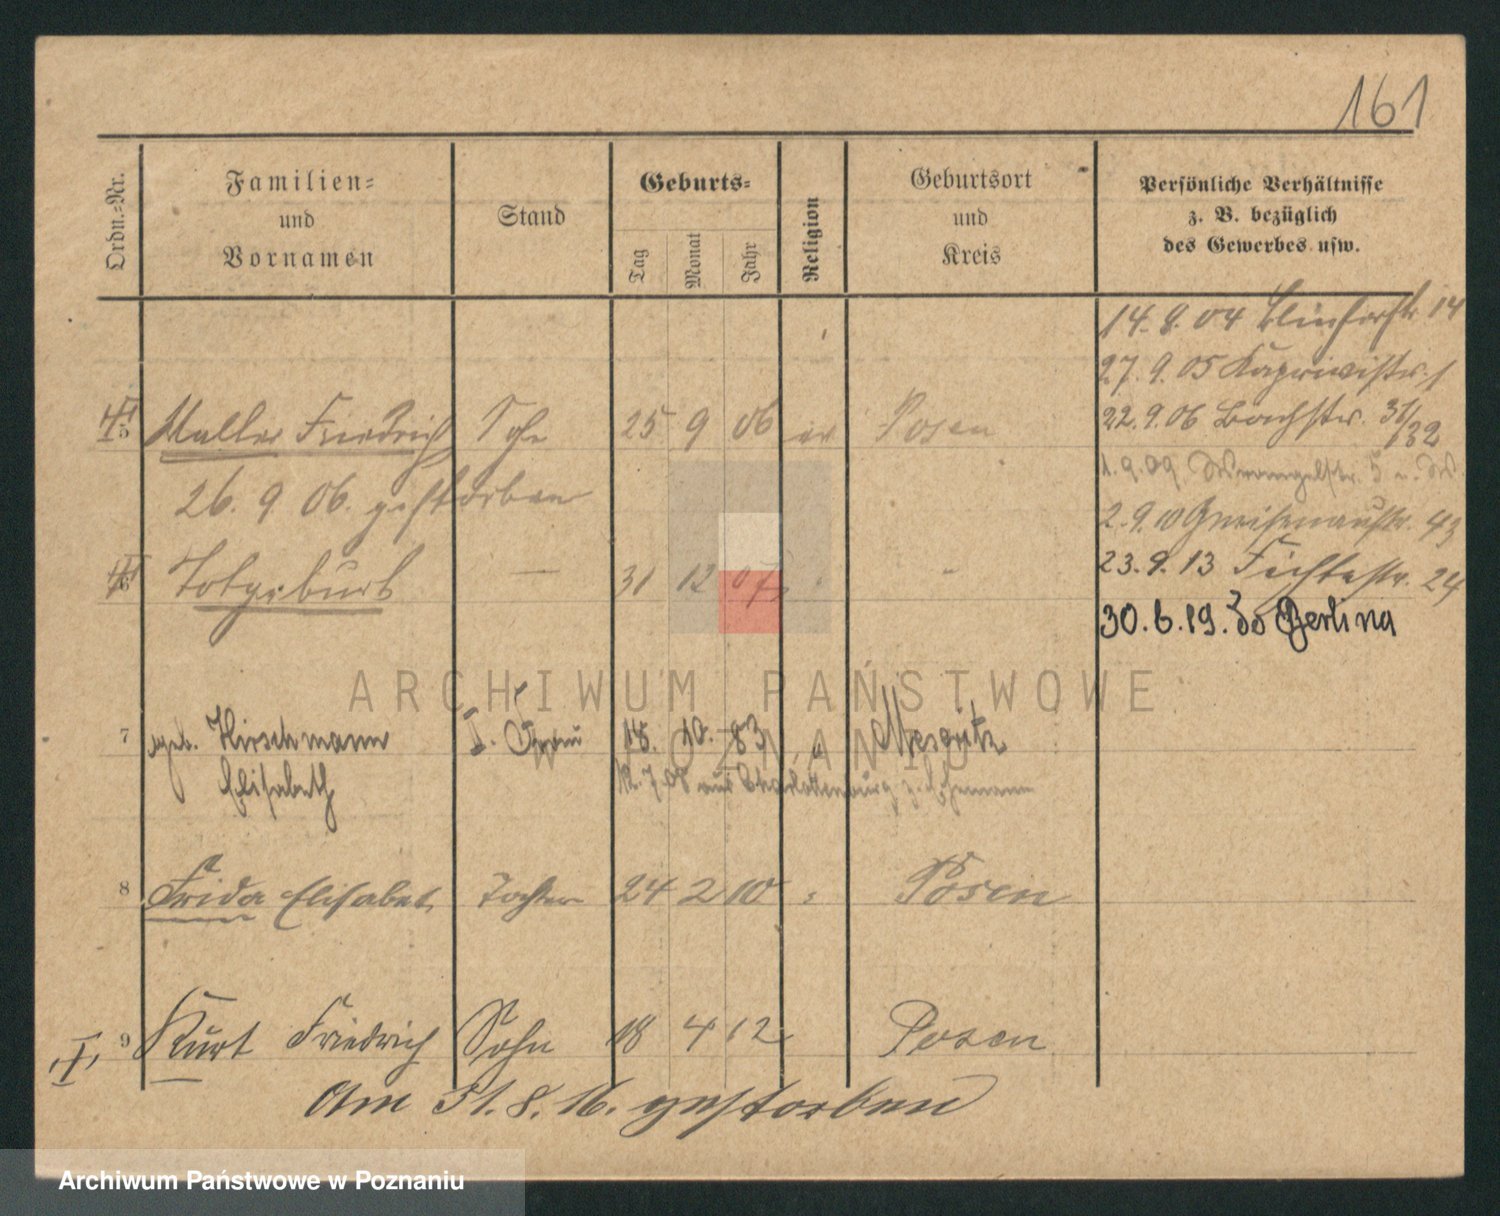 161
Ordn.-Nr.
Familien-
und
Vornamen
Stand
Geburts-
Tag
Monat
Jahr
Religion
Geburtsort
und
Kreis
Persönliche Verhältnisse
z. B. bezüglich
des Gewerbes usw.
14.9.04 14
27.9.05 Kaprivistr. 1
22.9.06 Bachstr. 31/32
1.9.09 Wrangelstr. 5
2.9.10 Gneisenaustr. 43
23.9.13 Fichtestr. 24
30.6.19. Berlin
5 Walter Friedrich Sohn 25 9 06 ev Posen
26. 9 06. gestorben
6 Totgeburt — 31 12 07 " -
7 geb. Hirschmann II. Frau 18. 10. 83 " Meseritz
Elisabeth 12.7.08 aus Charlottenburg z. Ehemann
8 Frida Elisabet Tochter 24 2 10 " Posen
9 Kurt Friedrich Sohn 18 4 12 Posen
Am 31.8.16. gestorben
ARCHIWUM PAŃSTWOWE
W POZNANIU
Archiwum Państwowe w Poznaniu